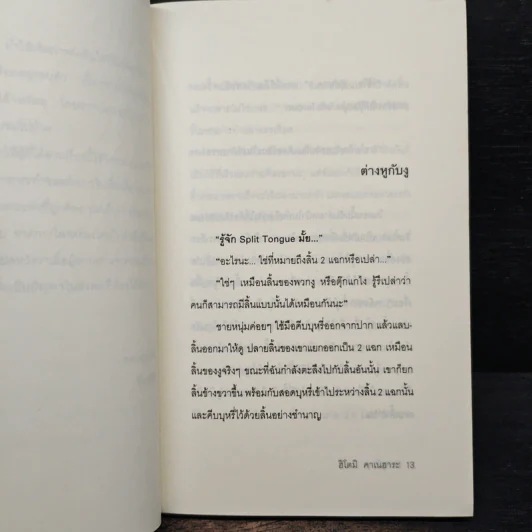 ต่างหูกับงู
"รู้จัก Split Tongue มั้ย..."
"อะไรนะ... ใช่ที่หมายถึงลิ้น 2 แฉกหรือเปล่า..."
"ใช่ๆ เหมือนลิ้นของพวกงู หรือตุ๊กแกไง รู้รึเปล่าว่า
คนก็สามารถมีลิ้นแบบนั้นได้เหมือนกันนะ"
ชายหนุ่มค่อยๆ ใช้มือคีบบุหรี่ออกจากปาก แล้วแลบ-
ลิ้นออกมาให้ดู ปลายลิ้นของเขาแยกออกเป็น 2 แฉก เหมือน
ลิ้นของงูจริงๆ ขณะที่ฉันกำลังตะลึงไปกับลิ้นอันนั้น เขาก็ยก
ลิ้นข้างขวาขึ้น พร้อมกับสอดบุหรี่เข้าไประหว่างลิ้น 2 แฉกนั้น
และคีบบุหรี่ไว้ด้วยลิ้นอย่างชำนาญ
ฮิโตมิ คาเนฮาระ 13